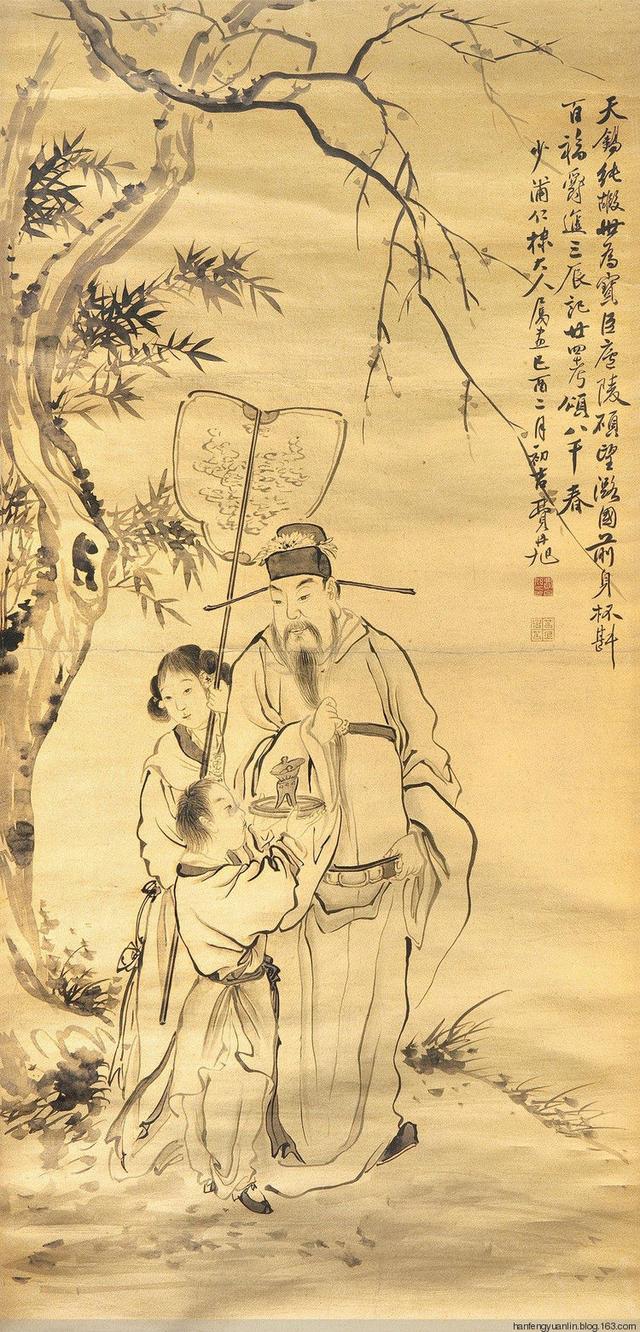 天錫純嘏世為寶臣廬陵碩望潞國前身杯斟
百福爵進三辰記廿四考頌八千春
少甫仁棣大人屬畫己酉二月初吉費丹旭
hanfengyuanlin.blog.163.com